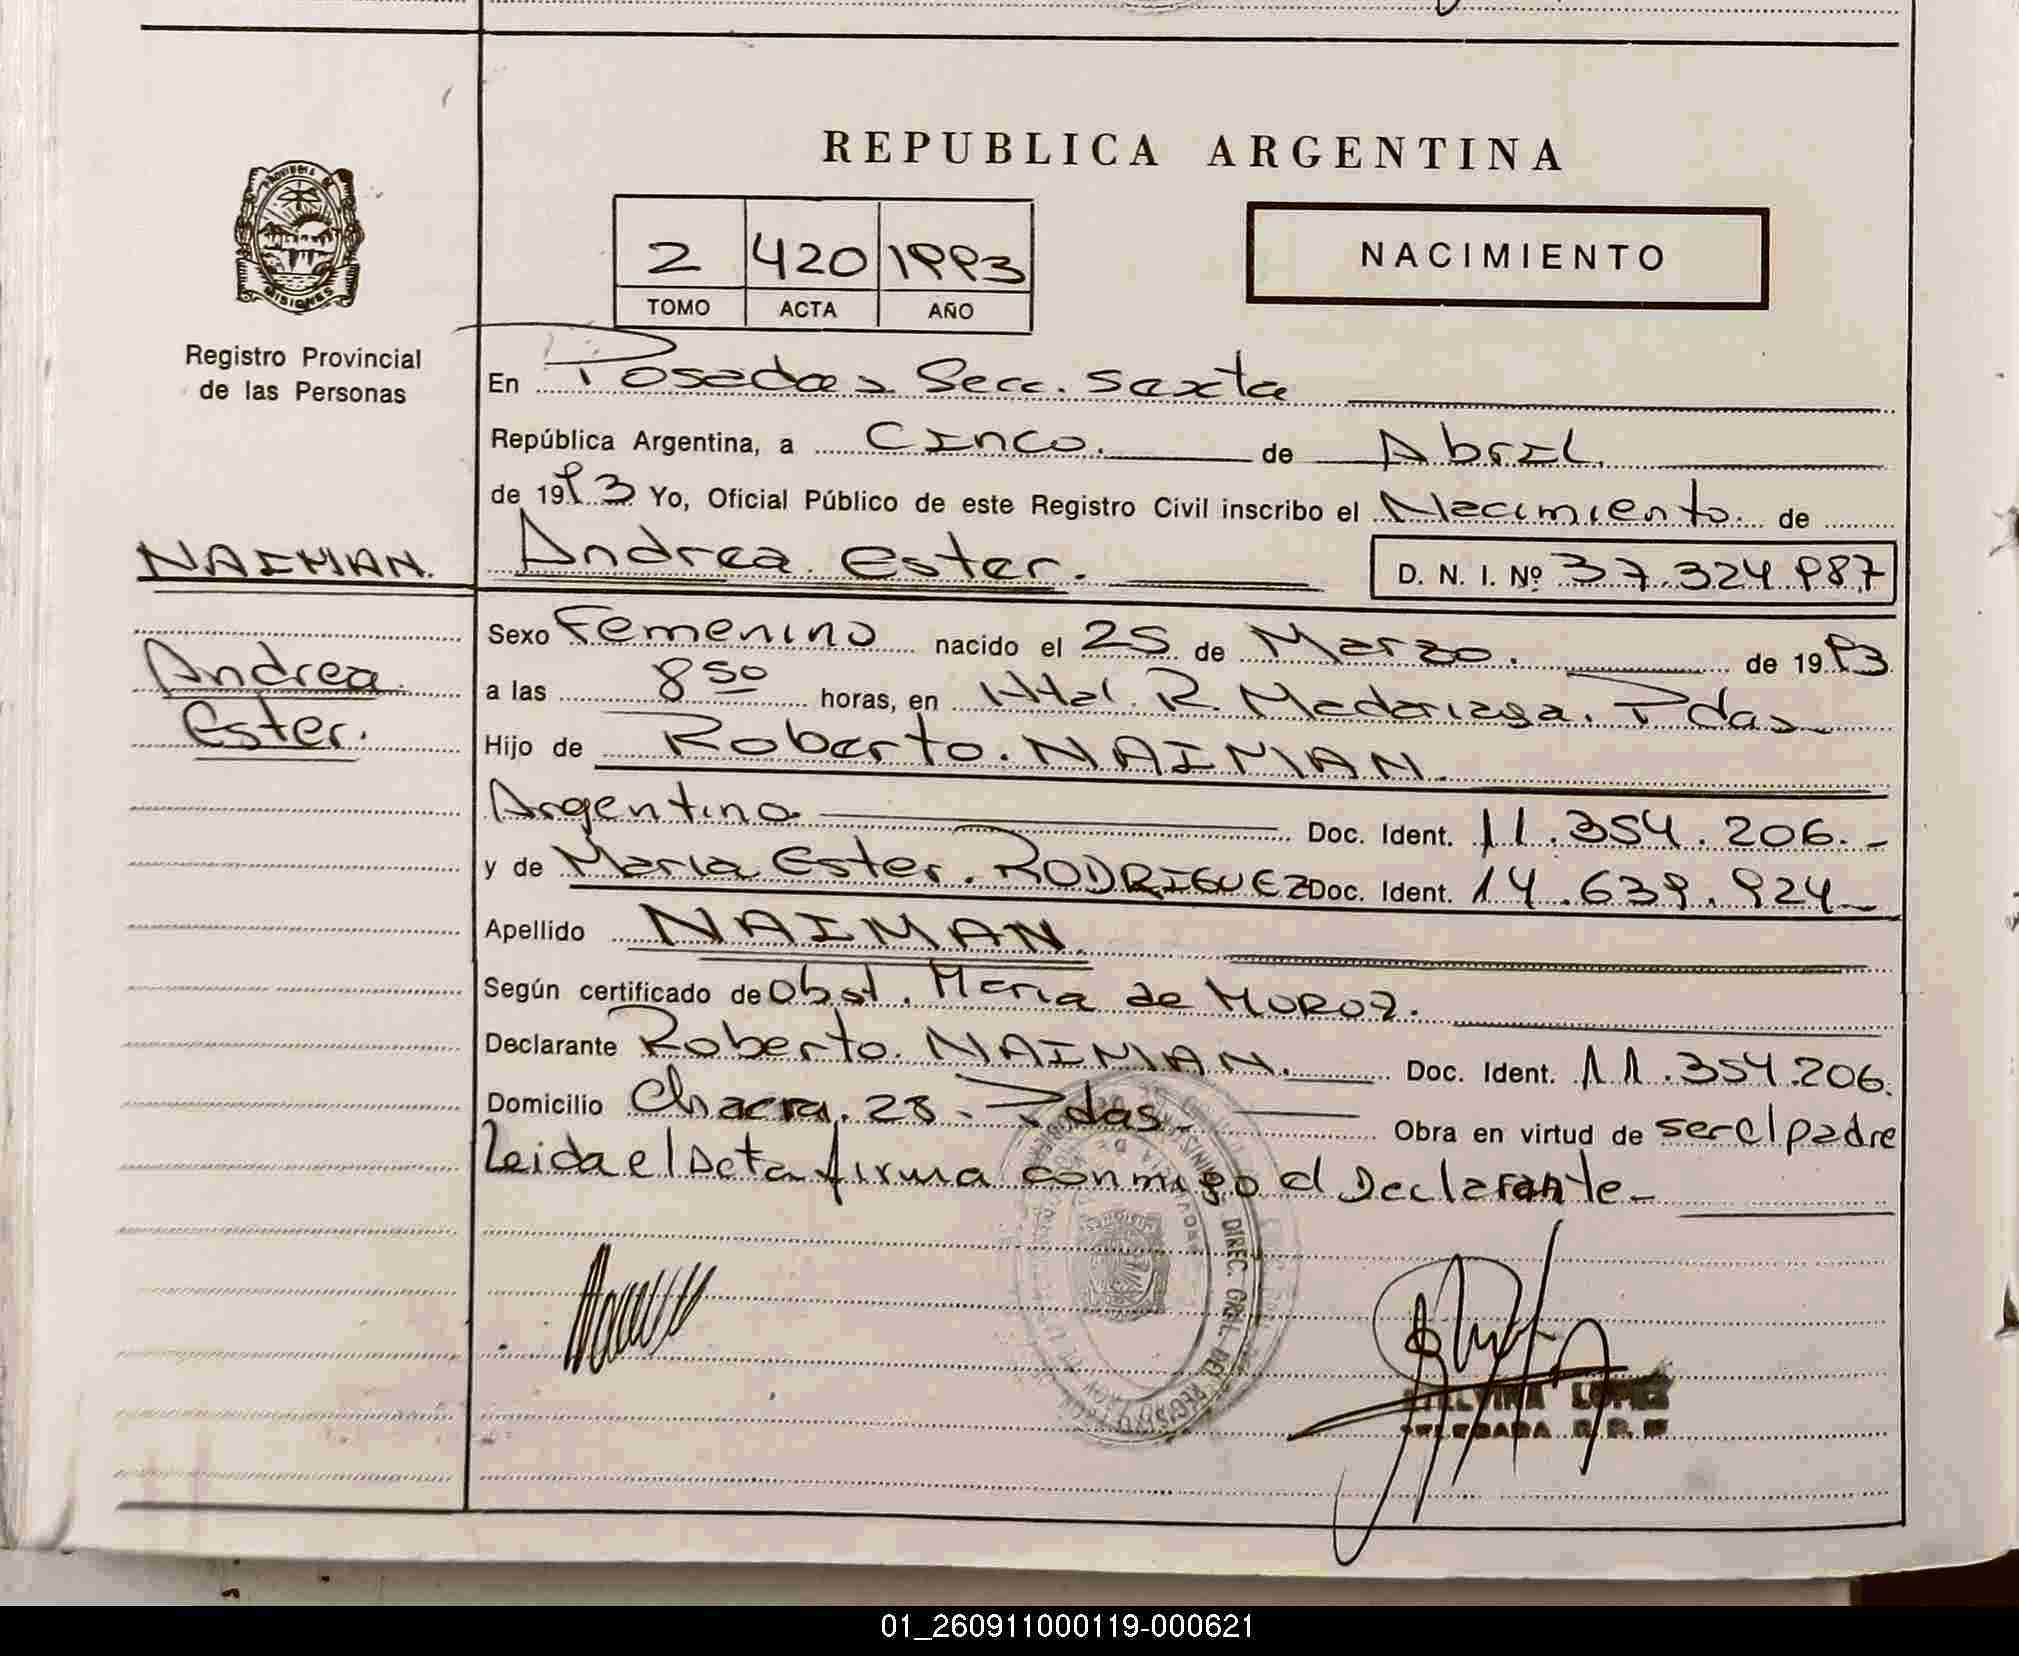 REPUBLICA ARGENTINA
PROVINCIA DE
MISIONES
2 420 1993
TOMO ACTA AÑO
NACIMIENTO
Registro Provincial
de las Personas
En Posadas Secc. Sexta
República Argentina, a Cinco. de Abril.
de 1993 Yo, Oficial Público de este Registro Civil inscribo el Nacimiento. de
NAIMAN. Andrea Ester. D. N. I. Nº 37.324.987
Sexo Femenino nacido el 25 de Marzo. de 1993
Andrea
a las 8 50 horas, en Htal. R. Madariaga. Pdas
Ester.
Hijo de Roberto. NAIMAN.
Argentino Doc. Ident. 11.354.206.-
y de Maria Ester. RODRIGUEZ Doc. Ident. 14.639.924-
Apellido NAIMAN
Según certificado de Obst. Maria de MUROZ.
Declarante Roberto. NAIMAN. Doc. Ident. 11.354.206.
Domicilio Chacra. 28 - Pdas - Obra en virtud de ser el padre
Leida el Acta firma conmigo el Declarante -
DIREC. GRAL. DEL REGISTRO
LOPEZ
DELEGADA R. P.
01_260911000119-000621